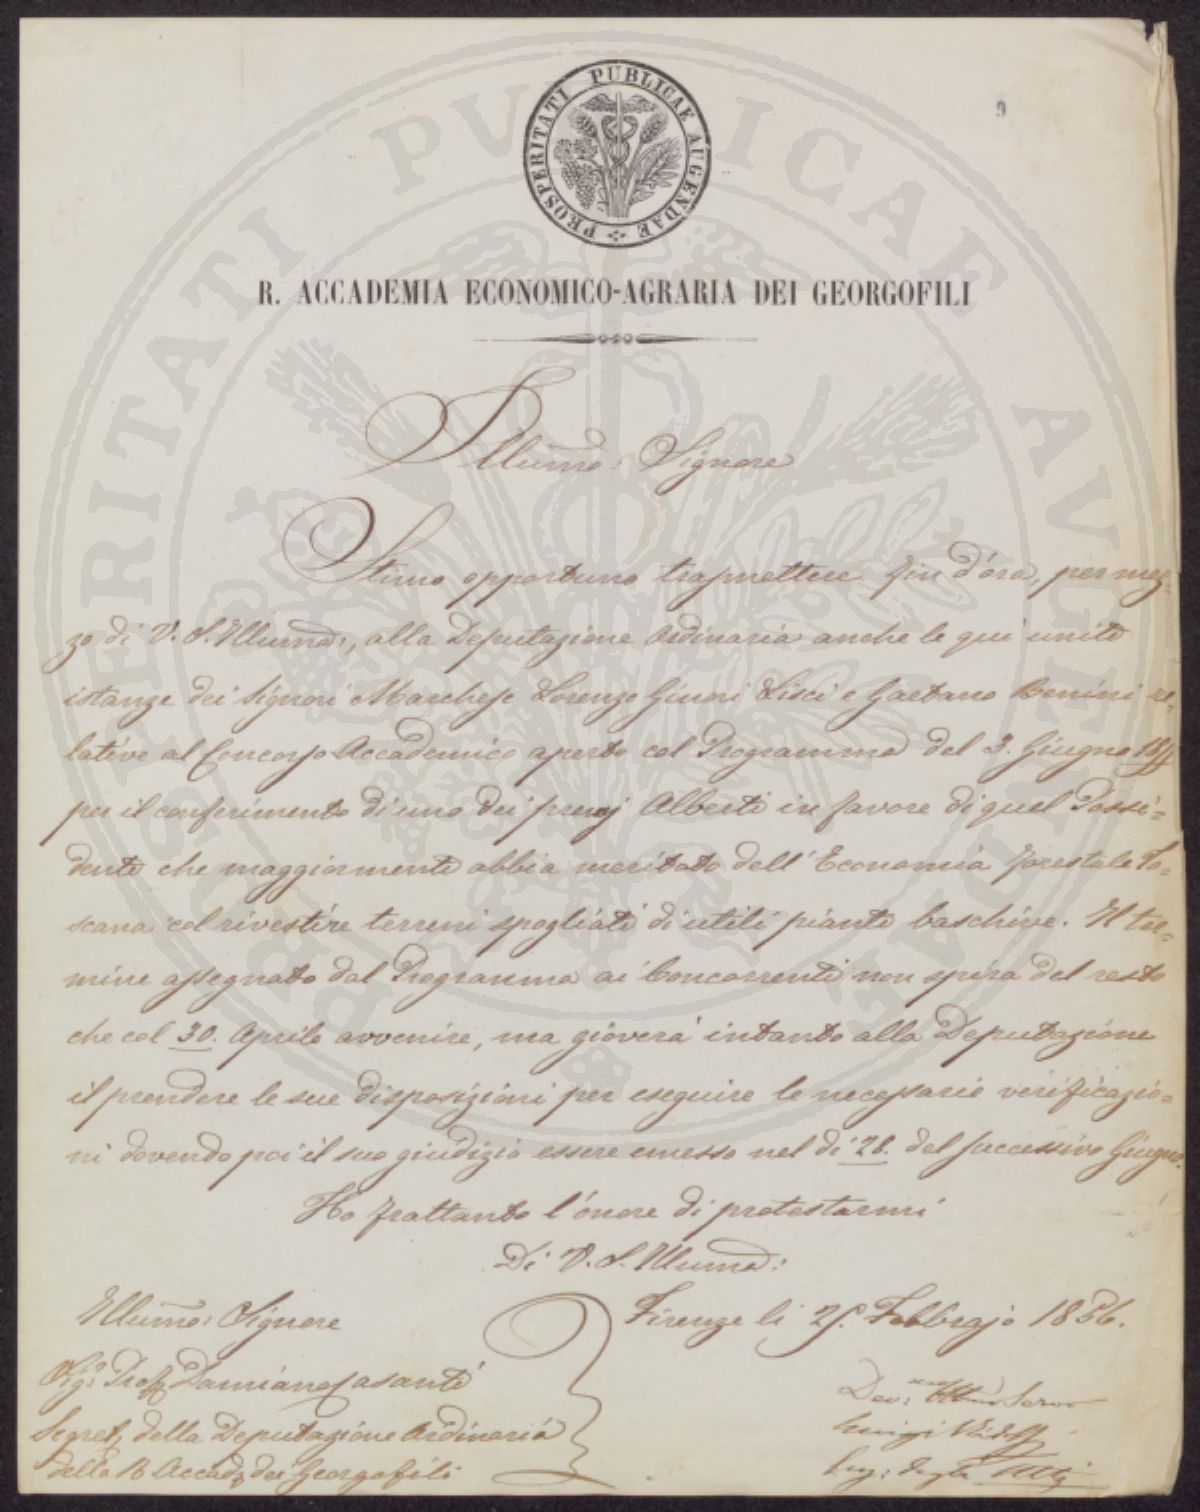 PROSPERITATI PUBLICAE AUGENDAE
R. ACCADEMIA ECONOMICO-AGRARIA DEI GEORGOFILI
Illumo: Signore
Stimo opportuno trasmettere fin d'ora, per mez-
zo di V. S. Illuma:, alla Deputazione Ordinaria anche le qui unite
istanze dei Signori Marchese Lorenzo Ginori Lisci e Gaetano Benini re-
lative al Concorso Accademico aperto col Programma del 3. Giugno
per il conferimento di uno dei premj Alberti in favore di quel Possi-
dente che maggiormente abbia meritato dell'Economia forestale To-
scana col rivestire terreni spogliati di utili piante boschive. Il ter-
mine assegnato dal Programma ai Concorrenti non spira del resto
che col 30. Aprile avvenire, ma gioverà intanto alla Deputazione
il prendere le sue disposizioni per eseguire le necessarie verificazio-
ni dovendo poi il suo giudizio essere emesso nel dì 28. del successivo Giugno.
Ho frattanto l'onore di protestarmi
Di V. S. Illuma:
Illumo: Signore
Firenze li Febbrajo 1856.
Sigr: Prof. Damiano Casanti
Segret. della Deputazione Ordinaria
della R Accad. dei Georgofili
Dev: Servo
Luigi
Seg: degli Atti